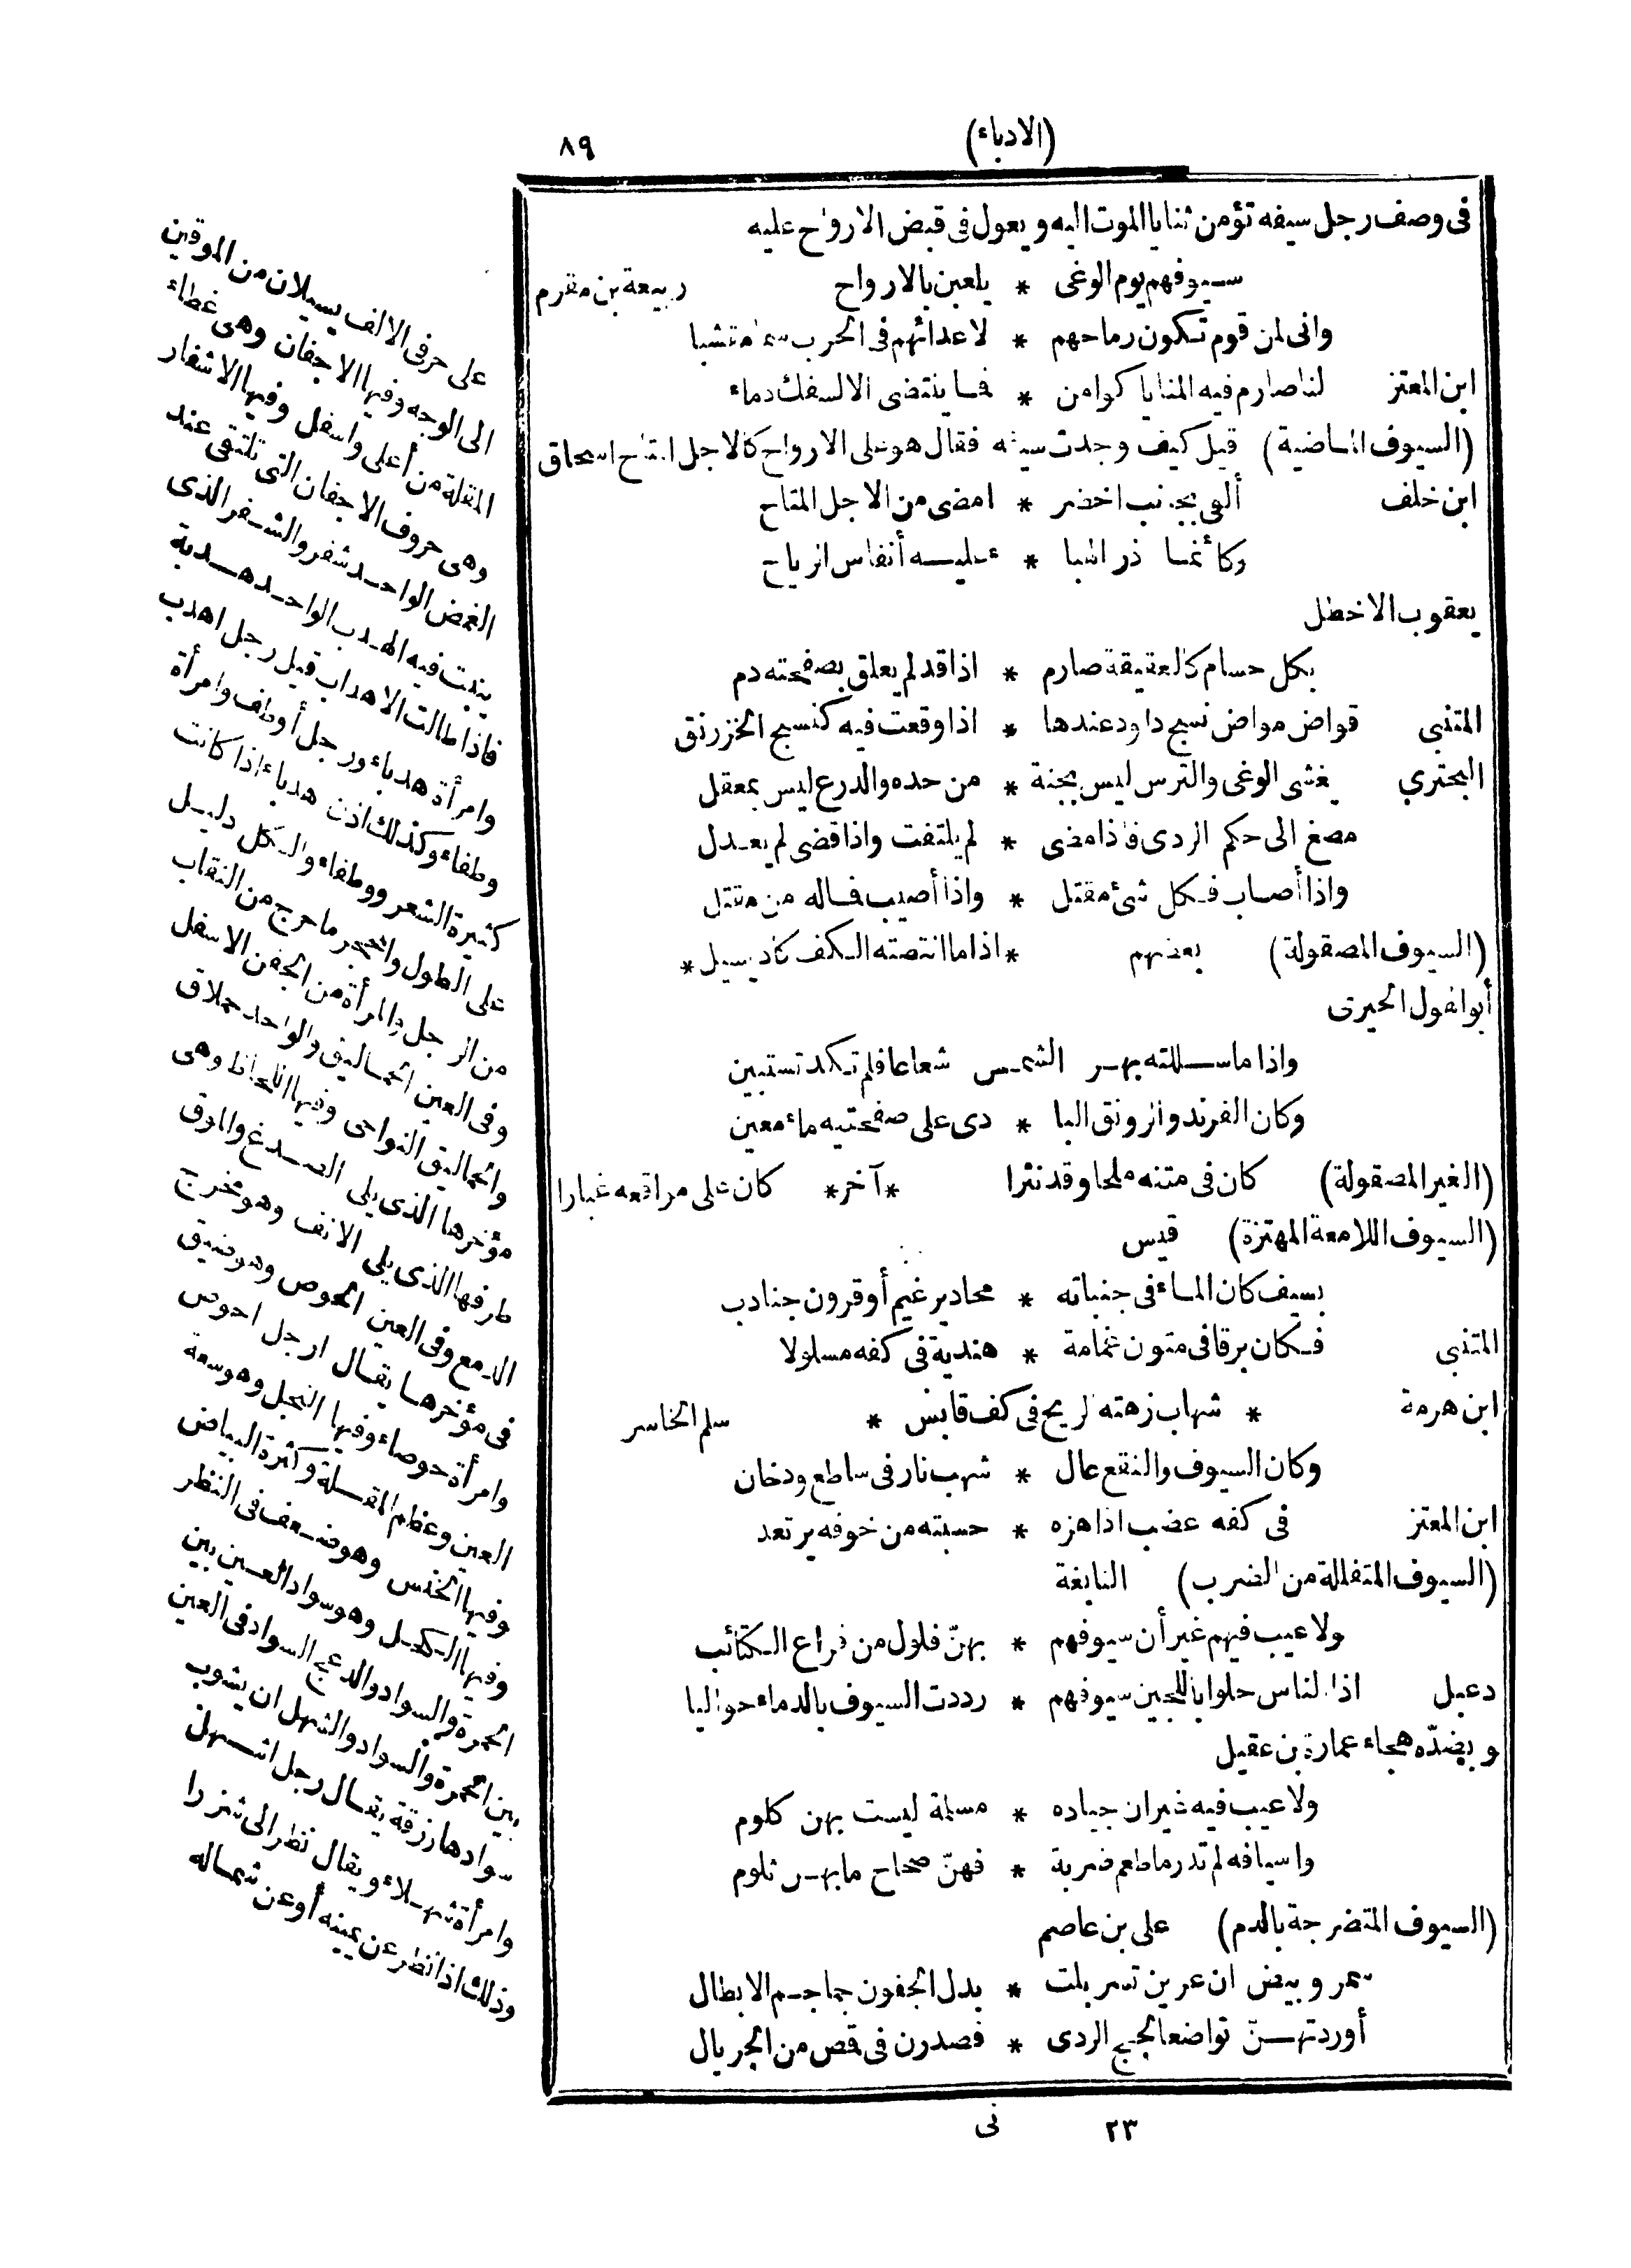 (الادباء)
٨٩
فى وصف رجل سيفه تؤمن ثنايا الموت اليه ويعول فى قبض الارواح عليه
سيوفهم يوم الوغى * يلعبن بالارواح ربيعة بن مقرم
وانى لمن قوم تكون رماحهم * لاعدائهم فى الحرب سما مقشبا
ابن المعتز لنا صارم فيه المنايا كوامن * فما ينتضى الا لسفك دماء
(السيوف الماضية) قيل كيف وجدت سيفه فقال هو على الارواح كالاجل المتاح اسحاق
ابن خلف ألقى بجانب اخضر * امضى من الاجل المتاح
وكأنما ذر الهبا * عليه أنفاس الرياح
يعقوب الاخطل
بكل حسام كالعقيقة صارم * اذا قد لم يعلق بصفحته دم
المتنبى قواض مواض نسج داود عندها * اذا وقعت فيه كنسج الخزرنق
البحتري يغشى الوغى والترس ليس بجنة * من حده والدرع ليس بمعقل
مصغ الى حكم الردى فاذا مضى * لم يلتفت واذا قضى لم يعدل
واذا أصاب فكل شئ مقتل * واذا أصيب فماله من مقتل
(السيوف المصقولة) بعضهم * اذا ما انتضته الكف كاد يسيل *
أبو الهول الحيرى
واذا ما سللته بهر الشمس شعاعا فلم تكد تستبين
وكان الفرند والرونق البا * دى على صفحتيه ماء معين
(الغير المصقولة) كان فى متنه ملحا وقد نثرا * آخر * كان على مواقعه غبارا
(السيوف اللامعة المهتزة) قيس
بسيف كان الماء فى جنباته * محادير غيم أو قرون جنادب
المتنبى فكان برقا فى متون غمامة * هندية فى كفه مسلولا
ابن هرمة * شهاب زهته الريح فى كف قابس * سلم الخاسر
وكان السيوف والنقع عال * شهب نار فى ساطع ودخان
ابن المعتز فى كفه عضب اذا هزه * حسبته من خوفه يرتعد
(السيوف المتفللة من الضرب) النابغة
ولا عيب فيهم غير أن سيوفهم * بهنّ فلول من قراع الكتائب
دعبل اذا الناس حلوا باللجين سيوفهم * رددت السيوف بالدماء حواليا
وبضدّه هجاء عمارة بن عقيل
ولا عيب فيه غير ان جياده * مسلمة ليست بهن كلوم
واسيافه لم تدر ما طعم ضربة * فهنّ صحاح ما بهن ثلوم
(السيوف المتضرجة بالدم) على بن عاصم
سمر وبيض ان عرين تسربلت * بدل الجفون جماجم الابطال
أوردتهنّ تواضعا لجج الردى * فصدرن فى قص من الجريال
٢٣ نى
على حرفى الالف يسيلان من الموقين
الى الوجه وفيها الاجفان وهى غطاء
المقلة من أعلى واسفل وفيها الاشفار
وهى حروف الاجفان التى تلتقى عند
الغمض الواحد شفر والشفر الذى
ينبت فيه الهدب الواحد هدبة
فاذا طالت الاهداب قيل رجل اهدب
وامرأة هدباء ورجل أوطف وامرأة
وطفاء وكذلك اذن هدباء اذا كانت
كثيرة الشعر ووطفاء والكل دليل
على الطول والمحجر ما خرج من النقاب
من الرجل والمرأة من الجفن الاسفل
وفى العين الحماليق والواحد حملاق
والحماليق النواحى وفيها اللحاظ وهى
مؤخرها الذى يلى الصدغ والموق
طرفها الذى يلى الانف وهو مخرج
الدمع وفى العين الحوص وهو ضيق
فى مؤخرها يقال رجل احوص
وامرأة حوصاء وفيها النجل وهو سعة
العين وعظم المقلة وكثرة البياض
وفيها الخفش وهو ضعف فى النظر
وفيها الكحل وهو سواد العين بين
الحمرة والسواد والدعج السواد فى العين
بين الحمرة والسواد والشهل ان يشوب
سوادها زرقة يقال رجل اشهل
وامرأة شهلاء ويقال نظر الى شزرا
وذلك اذا نظر عن يمينه أو عن شماله